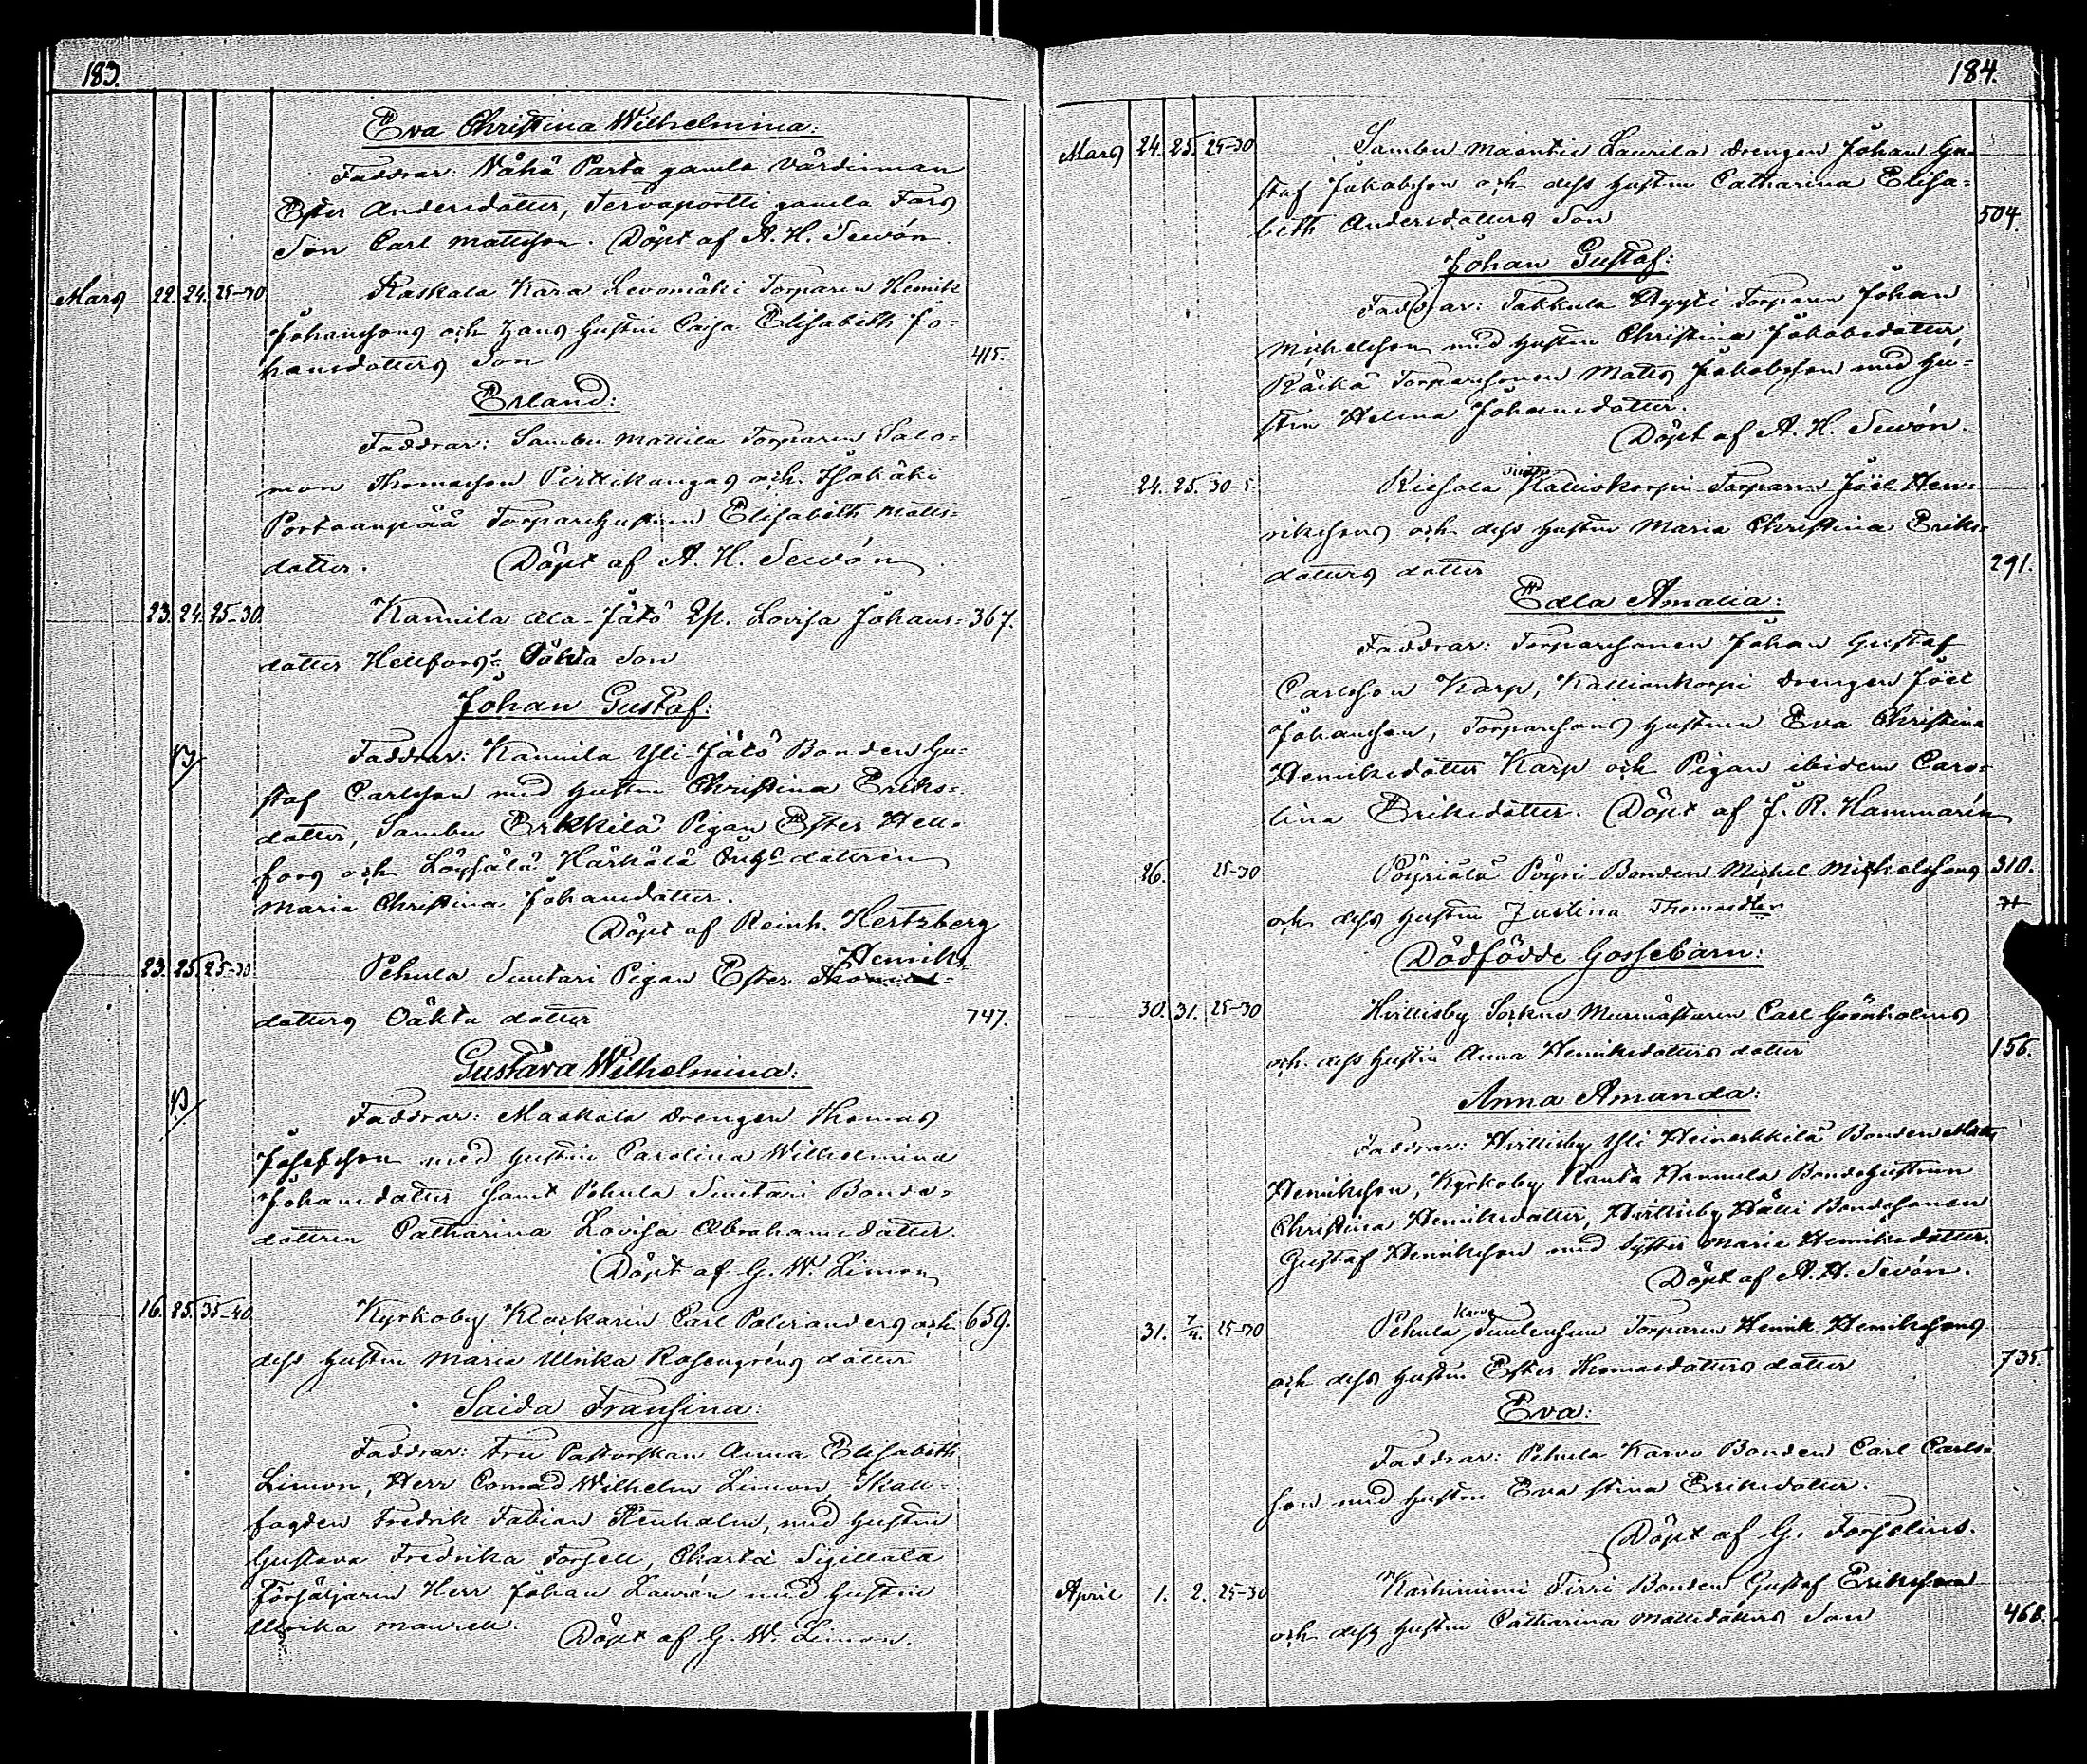 183.
Eva Christina Wilhelmina:
Faddrar: Nähä Parta gamla värdinnan
Ester Andersdotter, Tervaportti gamla Fars
Son Carl Mattsson. Döpt af A. H. Sewón.
Mars 22. 24. 25-30 Raskala Kara Levomäki Torparen Henrik
Johanssons och Hans hustru Caisa Elisabeth Jo-
hansdotters Son 415.
Erland:
Faddrar: Sambu Mattila Torparen Salo-
mon Thomasson Pirttikangas och Isokäki
Portaanpää Torparehustrun Elisabeth Matts-
dotter. Döpt af A. H. Sewón
23. 24. 25-30. Kannila Ala-Jätö Lovisa Johans- 367.
dotter Hellfors' Oäkta Son
Johan Gustaf:
Faddrar: Kannila Yli Jätö Bonden Gu-
staf Carlsson med hustru Christina Eriks-
dotter, Sambu Erkkilä Pigan Ester Hell-
fors och Löysälä Härkälä dottren
Maria Christina Johansdotter.
Döpt af Reinh. Hertzberg
23. 25. 25-30 Pehula Suutari Pigan Ester Henriks-
dotters Oäkta dotter 747.
Gustava Wilhelmina:
Faddrar: Maskala Drengen Thomas
Josefsson med hustru Carolina Wilhelmina
Johansdotter samt Pehula Suutari Bonde-
dottren Catharina Lovisa Abrahamsdotter.
Döpt af G. W. Limon
16. 25. 35-40. Kyrkoby Klockaren Carl Palanders och 659.
dess hustru Maria Ulrika Rosengréns dotter
Saida Fransina:
Faddrar: Fru Pastorskan Anna Elisabeth
Limon, Herr Conrad Wilhelm Limon, Skall-
fogden Fredrik Fabian Stenholm, med hustru
Gustava Fredrika Forsell, Charta Sigillata
Försäljaren Herr Johan Laurén med hustru
Ulrika Maurell. Döpt af G. W. Limon.
184.
Mars 24. 25. 25-30 Sambu Maantie Laurila Drengen Johan Gu-
staf Jakobsson och dess hustru Catharina Elisa-
beth Andersdotters Son 504.
Johan Gustaf:
Faddrar: Takkula Ryyti Torparen Johan
Michelsson med hustru Christina Jakobsdotter,
Räikä Torparesonen Matts Jakobsson med hu-
stru Helena Johansdotter.
Döpt af A. H. Sewón.
24. 25. 30-5 Kiesala Kalliokorpi Torparen Joel Hen-
rikssons och dess hustru Maria Christina Eriks-
dotters dotter 291.
Edla Amalia:
Faddrar: Torparesonen Johan Gustaf
Carlsson Karp, Kalliokorpi Drengen Joel
Johansson, Torparesons hustrun Eva Christina
Henriksdotter Karp och Pigan ibidem Caro-
lina Eriksdotter. Döpt af J. R. Hammarén
26. 25-30 Pöyriälä Pöyri Bonden Michel Michelssons 310.
och dess hustru Justina Thomasdtr
Dödfödde Gossebarn:
30. 31. 25-30 Hvittisby Sorkka Murmästaren Carl Grönholms
och dess hustru Anna Henriksdotters dotter 156.
Anna Amanda:
Faddrar: Hvittisby Yli Heinerkkilä Bonden Matts
Henriksson, Kyrkoby Ranta Hannula Bondehustrun
Christina Henriksdotter, Hvittisby Hälli Bondesonen
Gustaf Henriksson med Syster Maria Henriksdotter.
Döpt af A. H. Sevón.
31. 7/4. 25-30 Pehula Karvo Tuulensuu Torparen Henrik Henrikssons
och dess hustru Ester Thomasdotters dotter 735.
Eva:
Faddrar: Pehula Karvo Bonden Carl Carls-
son med hustru Eva Stina Eriksdotter.
Döpt af G. Forselius.
April 1. 2. 25-30 Karhiniemi Tirri Bonden Gustaf Eriksson
och dess hustru Catharina Mattsdotters Son 468.